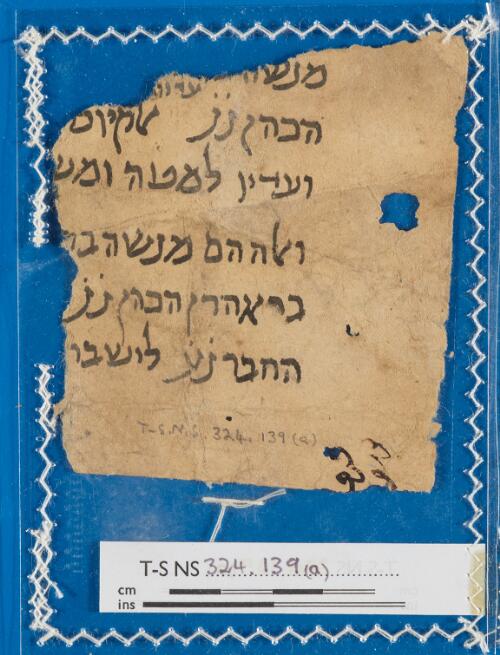 מנשה
הכהן נ̇נ̇
ועדין למטה ומש
ואלה הם מנשה בר
בר אהרן הכהן נ̇נ̇
החבר נ̇ע̇ לישבו
T-S.N.S. 324.139(a)
T-S NS 324.139(a)
cm
ins